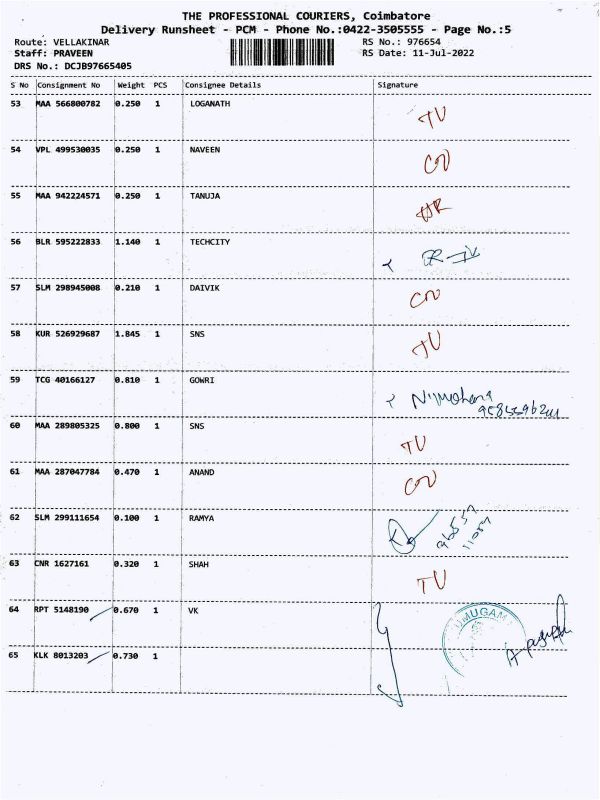 THE PROFESSIONAL COURIERS, Coimbatore
Delivery Runsheet - PCM - Phone No.:0422-3505555 - Page No.:5
Route: VELLAKINAR RS No.: 976654
Staff: PRAVEEN RS Date: 11-Jul-2022
DRS No.: DCJB97665405
S No Consignment No Weight PCS Consignee Details Signature
53 MAA 566800782 0.250 1 LOGANATH TU
54 VPL 499530035 0.250 1 NAVEEN
55 MAA 942224571 0.250 1 TANUJA
56 BLR 595222833 1.140 1 TECHCITY
57 SLM 298945008 0.210 1 DAIVIK
58 KUR 526929687 1.845 1 SNS TU
59 TCG 40166127 0.810 1 GOWRI
60 MAA 289805325 0.800 1 SNS TU
61 MAA 287047784 0.470 1 ANAND
62 SLM 299111654 0.100 1 RAMYA
63 CNR 1627161 0.320 1 SHAH TU
64 RPT 5148190 0.670 1 VK
65 KLK 8013203 0.730 1